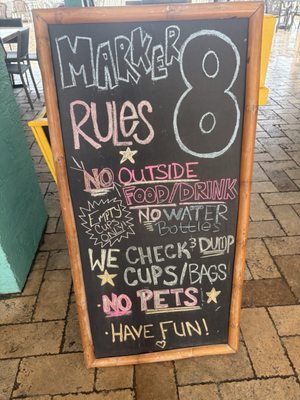 MARKER 8
RULES
NO OUTSIDE
FOOD/DRINK
EMPTY
CUPS ONLY!
NO WATER
BOTTLES
WE CHECK & DUMP
CUPS/BAGS
NO PETS
HAVE FUN!